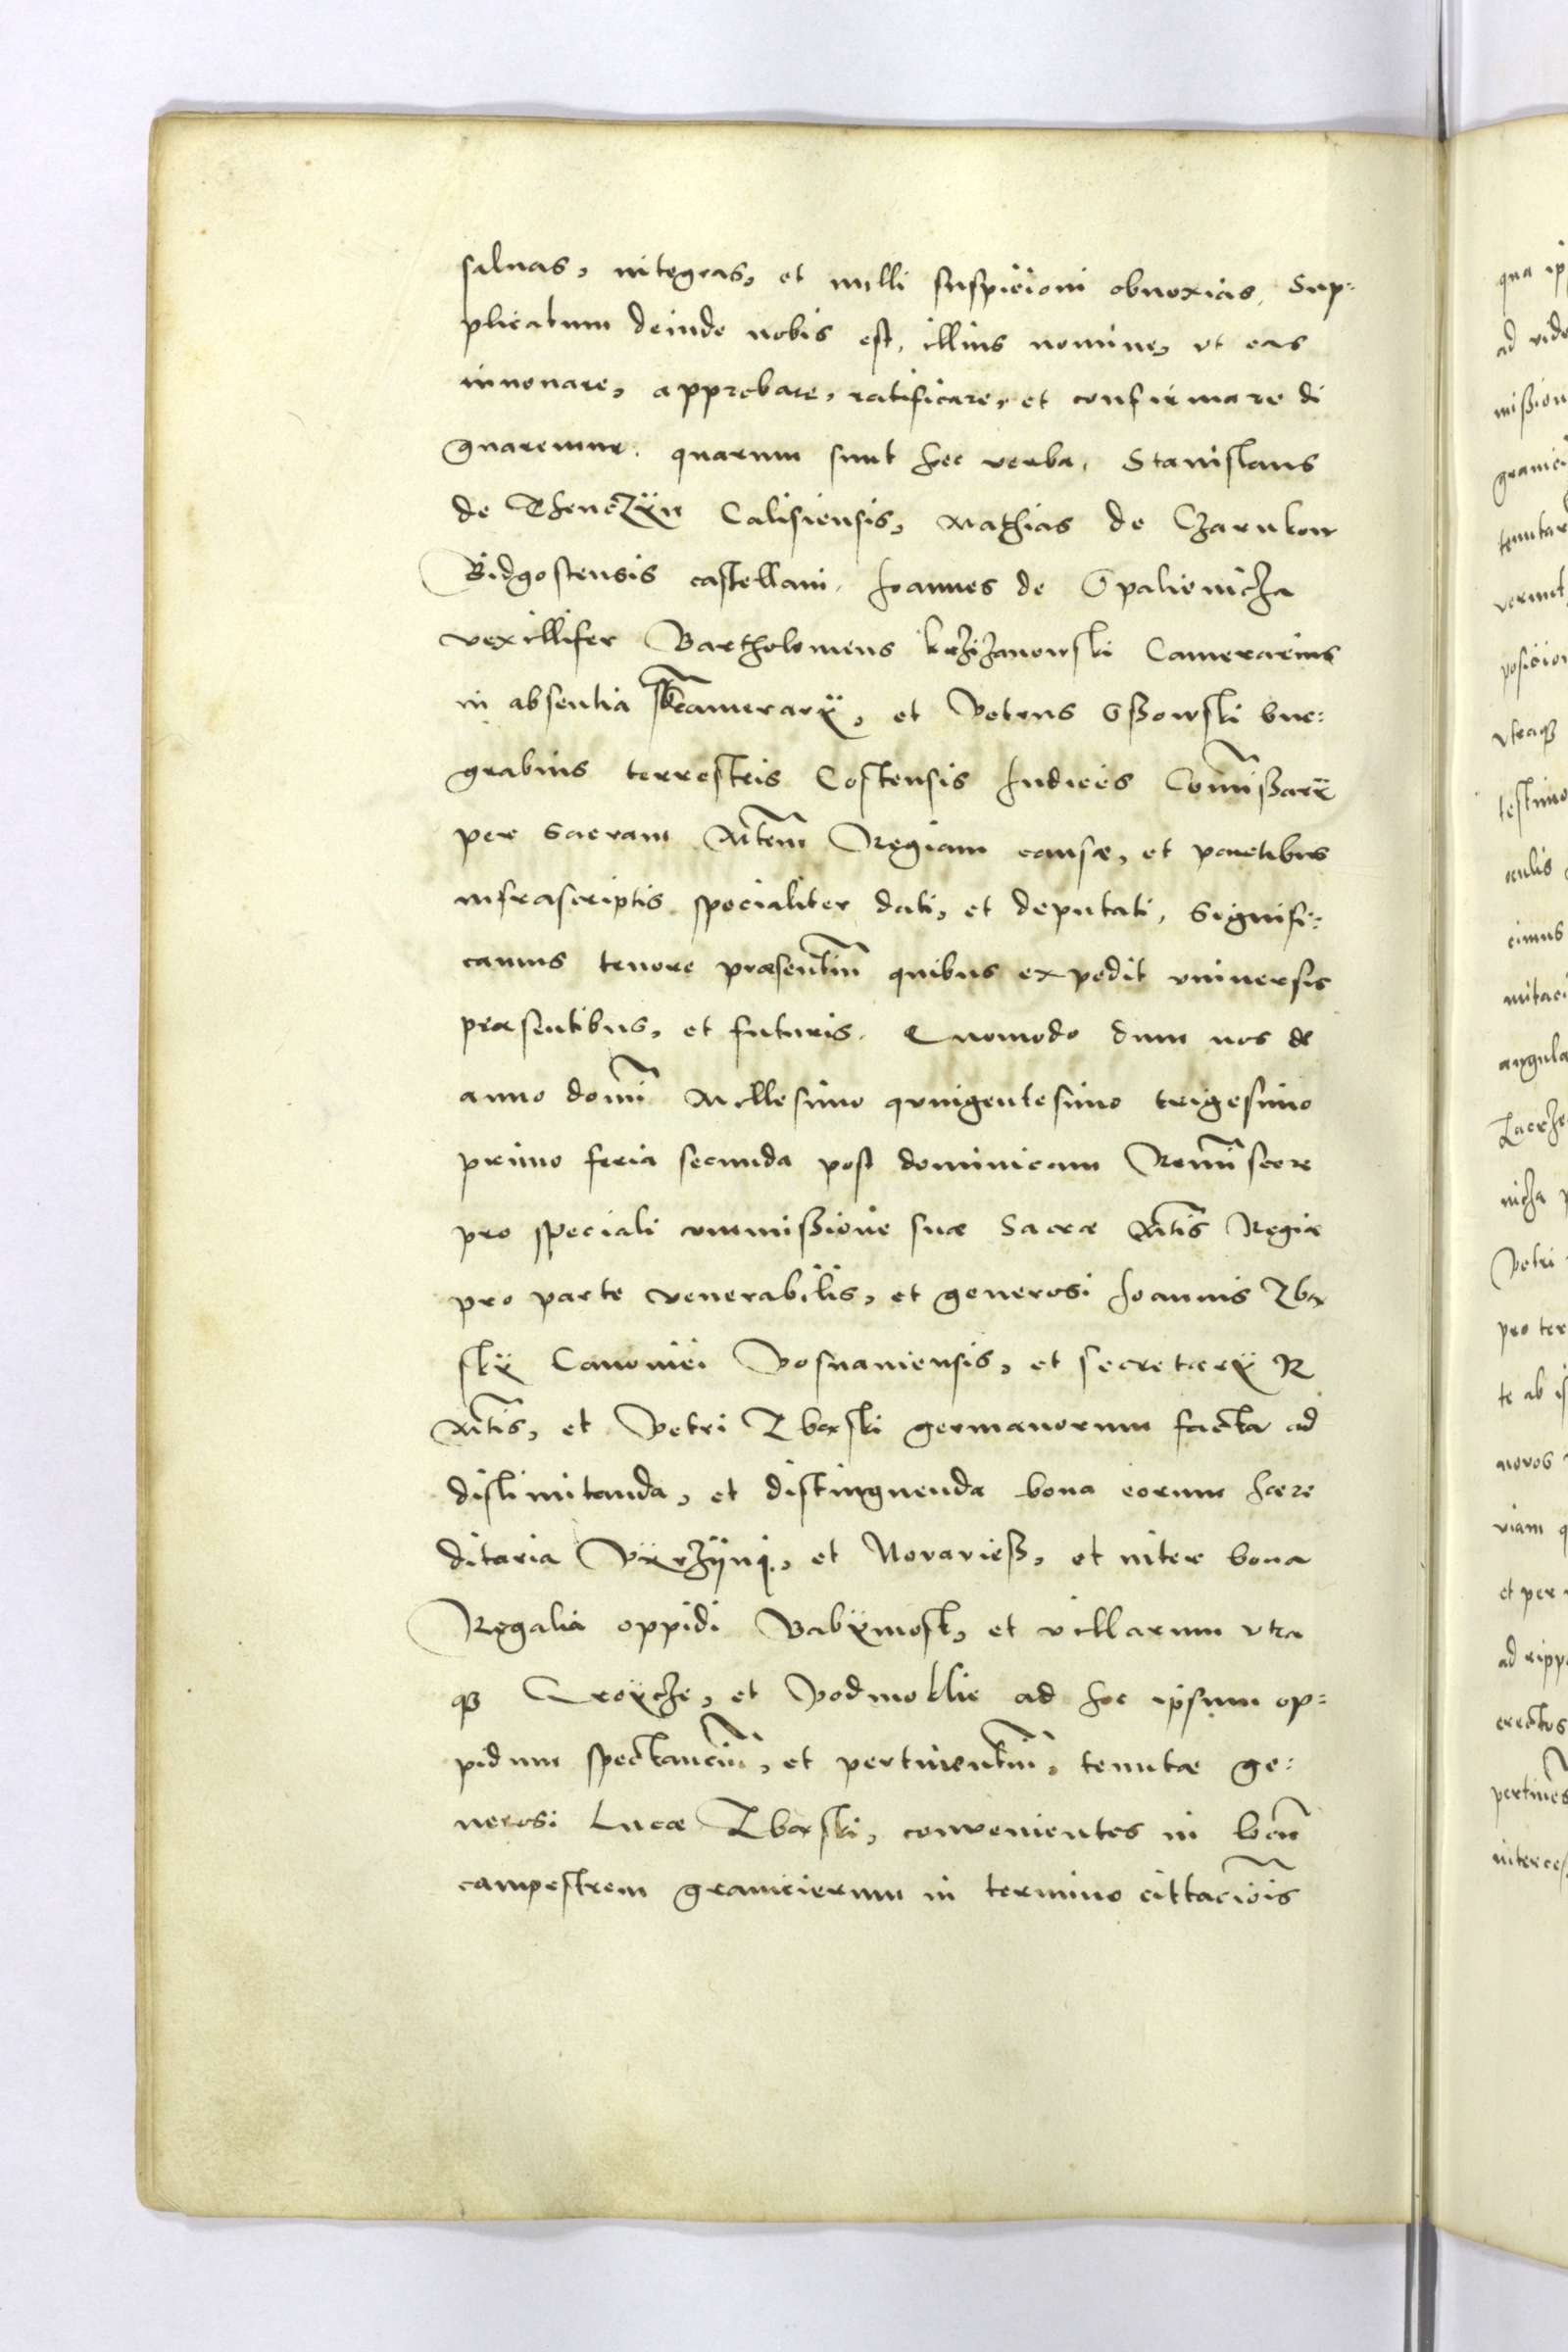 saluas, integras, et nulli suspicioni obnoxias, Sup-
plicatum deinde nobis est, illius nomine, vt eas
innouare, approbare, ratificare, et confirmare di
gnaremur. quarum sunt hec verba, Stanislaus
de Thenczÿn Calisiensis, Mathias de Czarnkow
Bidgostensis castellani, Joannes de Opalienicza
vexillifer Bartholomeus krzizanowski Camerarius
in absentia sbcamerarÿ, et Petrus Ossowski bur-
grabius terrestris Costensis Judices Commissarÿ
per Sacram Mtem Regiam causæ, et partibus
infrascriptis specialiter dati, et deputati, Signifi-
camus tenore præsentium quibus expedit vniuersis
præsentibus, et futuris. Quomodo dum nos de
anno domini Millesimo quingentesimo trigesimo
primo feria secunda post dominicam Reminiscere
pro speciali commissione suæ Sacræ Mtis Regiæ
pro parte venerabilis, et generosi Joannis Zba
skÿ Canonici Posnaniensis, et secretarÿ R
Mtis, et Petri Zbaski germanorum facta ad
dislimitanda, et distinguenda bona eorum hære
ditaria et Novaviess, et inter bona
Regalia oppidi Babÿmost, et villarum vtra
q3 Croÿcze, et Podmoklie ad hoc ipsum op-
pidum spectancium, et pertinentium, tenutæ ge-
nerosi Lucæ Zbaski, convenientes in locum
campestrem granicierum in termino cittacionis
qua ip
ad vide
mission
granici
tenutar
posicion
vtraq3
testimo
oculis
cimus
mitaci
angula
nicza
Petri
pro ter
te ab is
novos
viam q
et per
ad ripp
erectos
pertines
interces